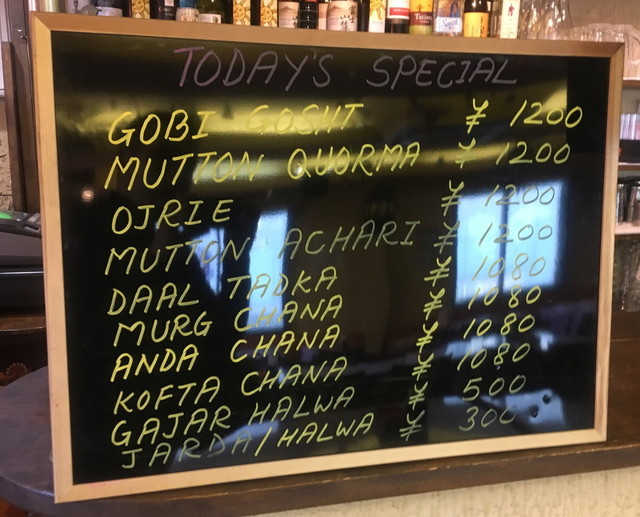 TODAY'S SPECIAL
GOBI GOSHT ¥ 1200
MUTTON QUORMA ¥ 1200
OJRIE ¥ 1200
MUTTON ACHARI ¥ 1200
DAAL TADKA ¥ 1080
MURG CHANA ¥ 1080
ANDA CHANA ¥ 1080
KOFTA CHANA ¥ 1080
GAJAR HALWA ¥ 500
JARDA/HALWA ¥ 300